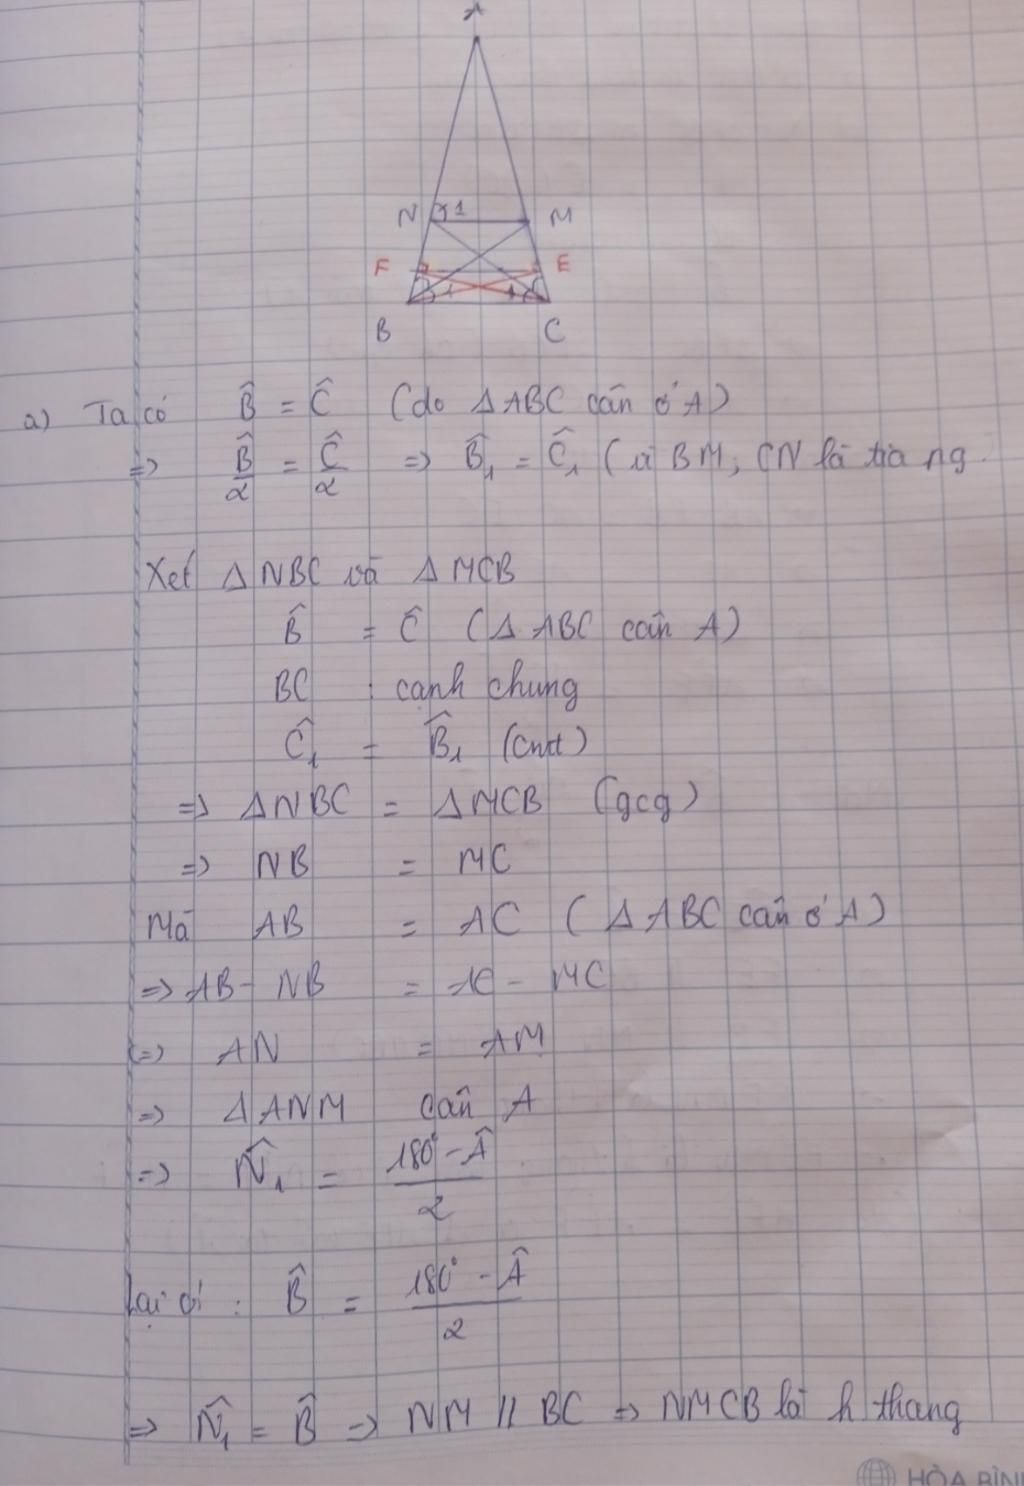 A
N 1 M
F E
1 1
B C
a) Ta có B̂ = Ĉ (do Δ ABC cân ở A)
=> B̂/2 = Ĉ/2 => B̂₁ = Ĉ₁ (vì BM, CN là
Xét Δ NBC và Δ MCB
B̂ = Ĉ (Δ ABC cân A)
BC : cạnh chung
Ĉ₁ = B̂₁ (cmt)
=> ΔNBC = ΔMCB (gcg)
=> NB = MC
Mà AB = AC (Δ ABC cân ở A)
=> AB - NB = AC - MC
(=) AN = AM
=> ΔANM cân A
=> N̂₁ = (180° - Â)/2
Lại có : B̂ = (180° - Â)/2
=> N̂₁ = B̂ => NM // BC => NMCB là h thang
HÒA BÌN